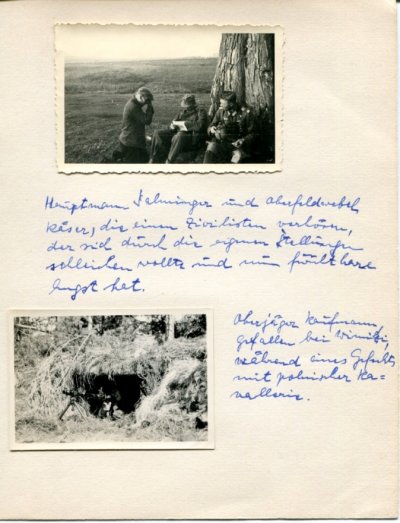 Hauptmann und Oberfeldwebel
Käser, die einen Zivilisten verhören,
der sich durch die eigenen Stellungen
schleichen wollte und nun furchtbare
Angst hat.
Oberjäger Kaufmann,
gefallen bei
während eines Gefechts
mit polnischer Ka-
vallerie.